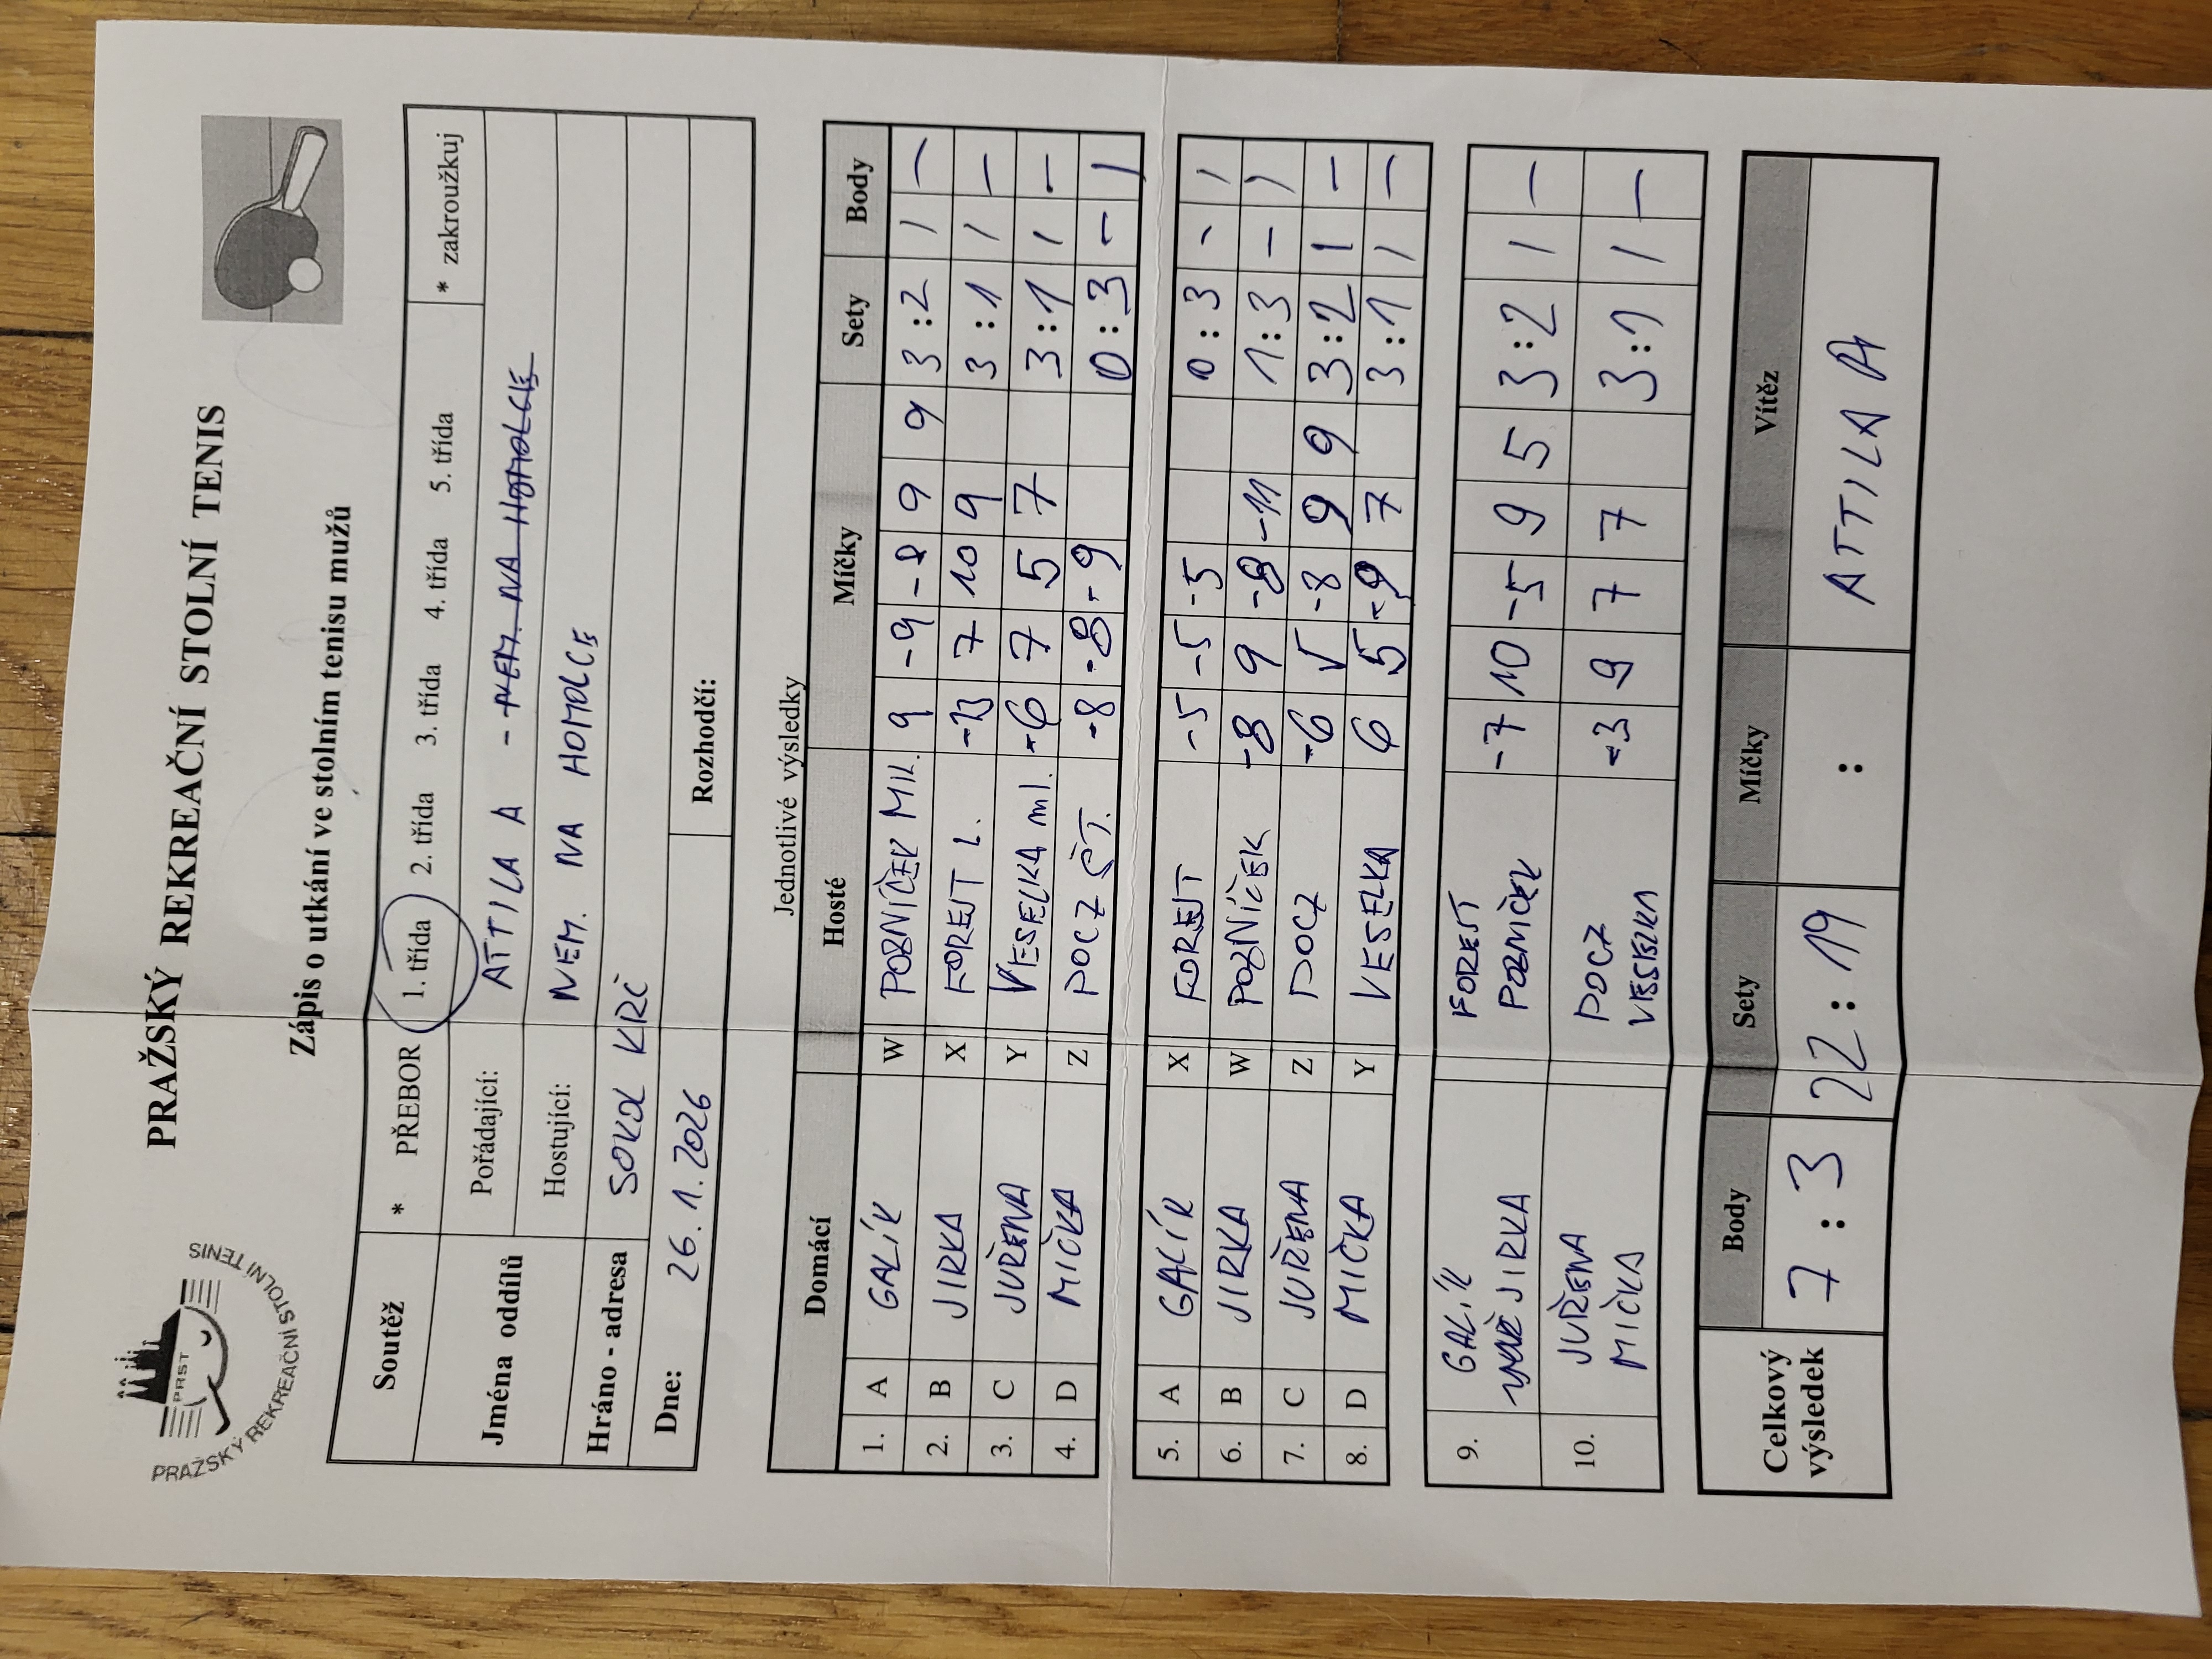 PRAŽSKÝ REKREAČNÍ STOLNÍ TENIS
PRST
PRAŽSKÝ REKREAČNÍ STOLNÍ TENIS
Zápis o utkání ve stolním tenisu mužů
Soutěž * PŘEBOR 1. třída 2. třída 3. třída 4. třída 5. třída * zakroužkuj
Jména oddílů Pořádající: ATTILA A - NEM. NA HOMOLCE
Hostující: NEM. NA HOMOLCE
Hráno - adresa SOKOL KRČ
Dne: 26.1.2026 Rozhodčí:
Jednotlivé výsledky
Domácí Hosté Míčky Sety Body
1. A GALÍK W POZNÍČEK MIL. 9 -9 -8 9 9 3:2 1 -
2. B JIRKA X FOREJT L. -13 7 10 9 3:1 1 -
3. C JUŘENA Y VESELKA ml. -6 7 5 7 3:1 1 -
4. D MIČKA Z DOCZ ŠT. -8 -8 -9 0:3 - 1
5. A GALÍK X FOREJT -5 -5 -5 0:3 - 1
6. B JIRKA W POZNÍČEK -8 9 -8 -11 1:3 - 1
7. C JUŘENA Z DOCZ -6 5 -8 9 9 3:2 1 -
8. D MIČKA Y VESELKA 6 5 -9 7 3:1 1 -
9. GALÍK JIRKA FOREJT POZNÍČEK -7 10 -5 9 5 3:2 1 -
10. JUŘENA MIČKA DOCZ VESELKA -3 9 7 7 3:1 1 -
Celkový výsledek Body Sety Míčky Vítěz
7:3 22:19 : ATTILA A